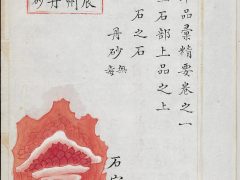 本草品彙精要卷之一
玉石部上品之上
石之石
丹砂 無毒
石穴
辰州丹砂